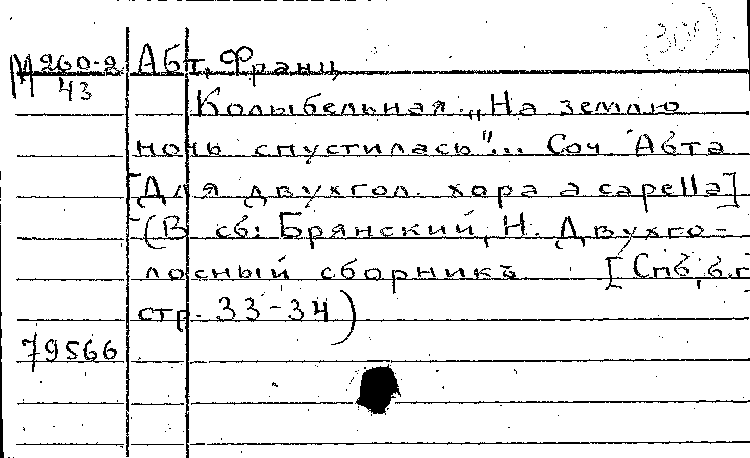 М 260-2 Абт, Франц
43
Колыбельная „На землю
ночь спустилась"... Соч. Абта
[Для двухгол. хора a capella]
(В сб: Брянский, Н. Двухго-
лосный сборникъ [Спб, б.г]
стр. 33-34)
79566